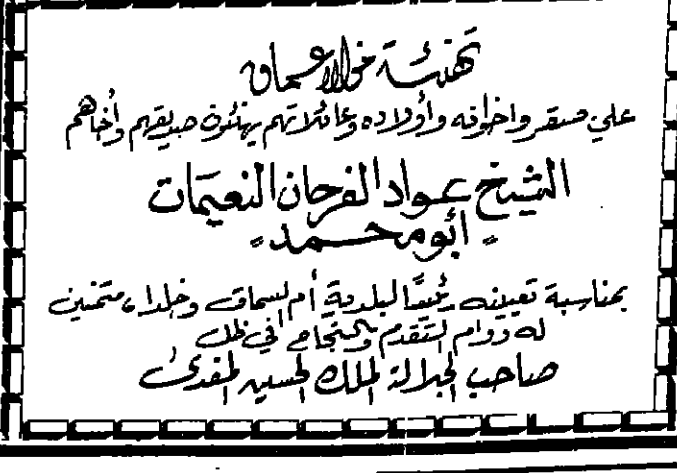 تهنئة من الأعماق
علي مسقر واخوانه وأولاده وعائلاتهم يهنئون صديقهم وأخاهم
الشيخ عواد الفرحان النعيمات
"أبو محمد"
بمناسبة تعيينه رئيسًا لبلدية أم السماق وخلدا، متمنين
له دوام التقدم والنجاح في ظل
صاحب الجلالة الملك الحسين المفدى